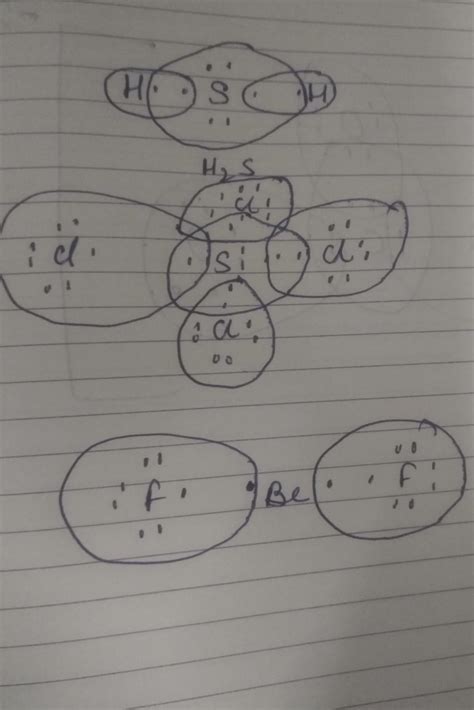 H S H
H₂S
Cl
Cl Si Cl
Cl
F Be F